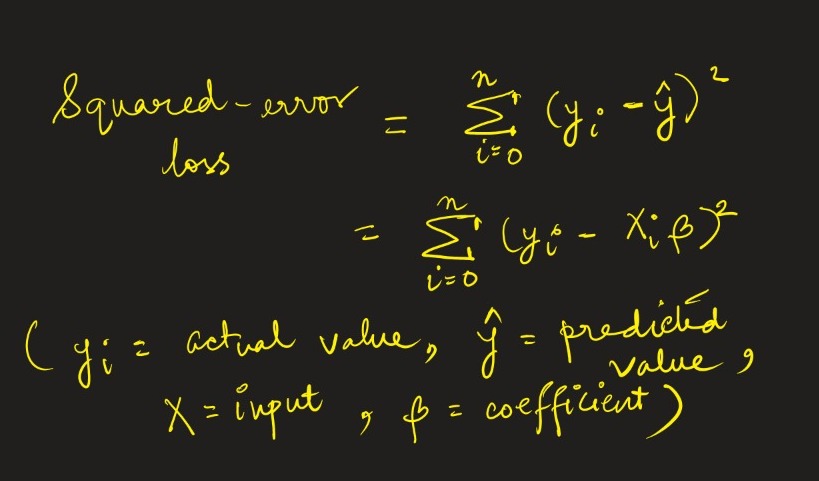 Squared-error loss = ∑_{i=0}^{n} (y_i - ŷ)²
= ∑_{i=0}^{n} (y_i - X_i β)²
( y_i = actual value, ŷ = predicted value,
X = input, β = coefficient)